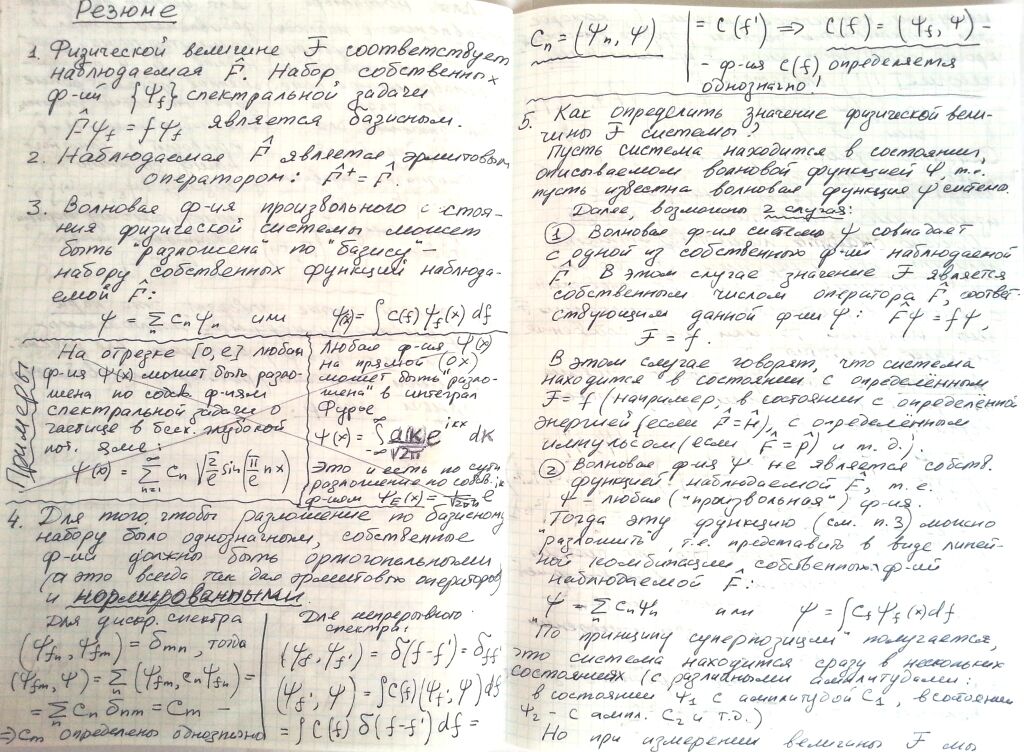 Резюме
1. Физической величине F соответствует
наблюдаемая F̂. Набор собственных
ф-ий {Ψ_f} спектральной задачи
F̂Ψ_f = fΨ_f является базисным.
2. Наблюдаемая F̂ является эрмитовым
оператором: F̂⁺ = F̂.
3. Волновая ф-ия произвольного состоя-
ния физической системы может
быть "разложена" по "базису" –
набору собственных функций наблюда-
емой F̂:
Ψ = Σ_n c_n Ψ_n или Ψ(x) = ∫ C(f) Ψ_f(x) df
Примеры
На отрезке [0,ℓ] любая
ф-ия Ψ(x) может быть разло-
жена по собств. ф-иям
спектральной задачи о
частице в беск. глубокой
пот. яме:
Ψ(x) = Σ_{n=1}^∞ c_n √(2/ℓ) sin(π/ℓ n x)
Любая ф-ия Ψ(x)
на прямой (Ox)
может быть "разло-
жена" в интеграл
Фурье
Ψ(x) = ∫_{-∞}^{∞} a_k/√2π e^{ikx} dk
Это и есть по сути
разложение по собств.
ф-иям Ψ_E(x) = 1/√2π e^{ikx}
4. Для того, чтобы разложение по базисному
набору было однозначным, собственные
ф-ии должны быть ортогональными
(а это всегда так для эрмитовых операторов)
и нормированными.
Для дискр. спектра
(Ψ_{fn}, Ψ_{fm}) = δ_{mn}, тогда
(Ψ_{fm}, Ψ) = Σ_n (Ψ_{fm}, c_n Ψ_{fn}) =
= Σ_n c_n δ_{nm} = c_m –
⇒ c_m определены однозначно
Для непрерывного
спектра:
(Ψ_f, Ψ_f') = δ(f-f') = δ_{ff'}
(Ψ_f', Ψ) = ∫ C(f) (Ψ_f', Ψ_f) df
= ∫ C(f) δ(f-f') df =
C_n = (Ψ_n, Ψ)
= C(f') ⇒ C(f) = (Ψ_f, Ψ) –
- ф-ия C(f) определяется
однозначно!
5. Как определить значение физической вели-
чины F системы?
Пусть система находится в состоянии,
описываемом волновой функцией Ψ, т.е.
пусть известна волновая функция Ψ системы.
Далее, возможны 2 случая:
① Волновая ф-ия системы Ψ совпадает
с одной из собственных ф-ий наблюдаемой
F̂. В этом случае значение F является
собственным числом оператора F̂, соответ-
ствующим данной ф-ии Ψ: F̂Ψ = fΨ,
F = f.
В этом случае говорят, что система
находится в состоянии с определённым
F = f (например, в состоянии с определённой
энергией (если F̂ = Ĥ), с определённым
импульсом (если F̂ = p̂) и т.д.).
② Волновая ф-ия Ψ не является собств.
функцией наблюдаемой F̂, т.е.
Ψ – любая ("произвольная") ф-ия.
Тогда эту функцию (см. п. 3) можно
"разложить", т.е. представить в виде линей-
ной комбинации собственных ф-ий
наблюдаемой F̂:
Ψ = Σ_n c_n Ψ_n или Ψ = ∫ C_f Ψ_f(x) df
"По принципу суперпозиции" получается,
что система находится сразу в нескольких
состояниях (с различными амплитудами:
в состоянии Ψ₁ с амплитудой C₁, в состоянии
Ψ₂ – с ампл. C₂ и т.д.)
Но при измерении величины F мы